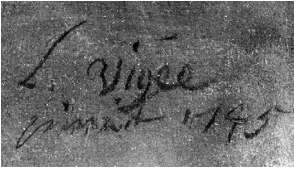 L. Vigée
pinxit 1745